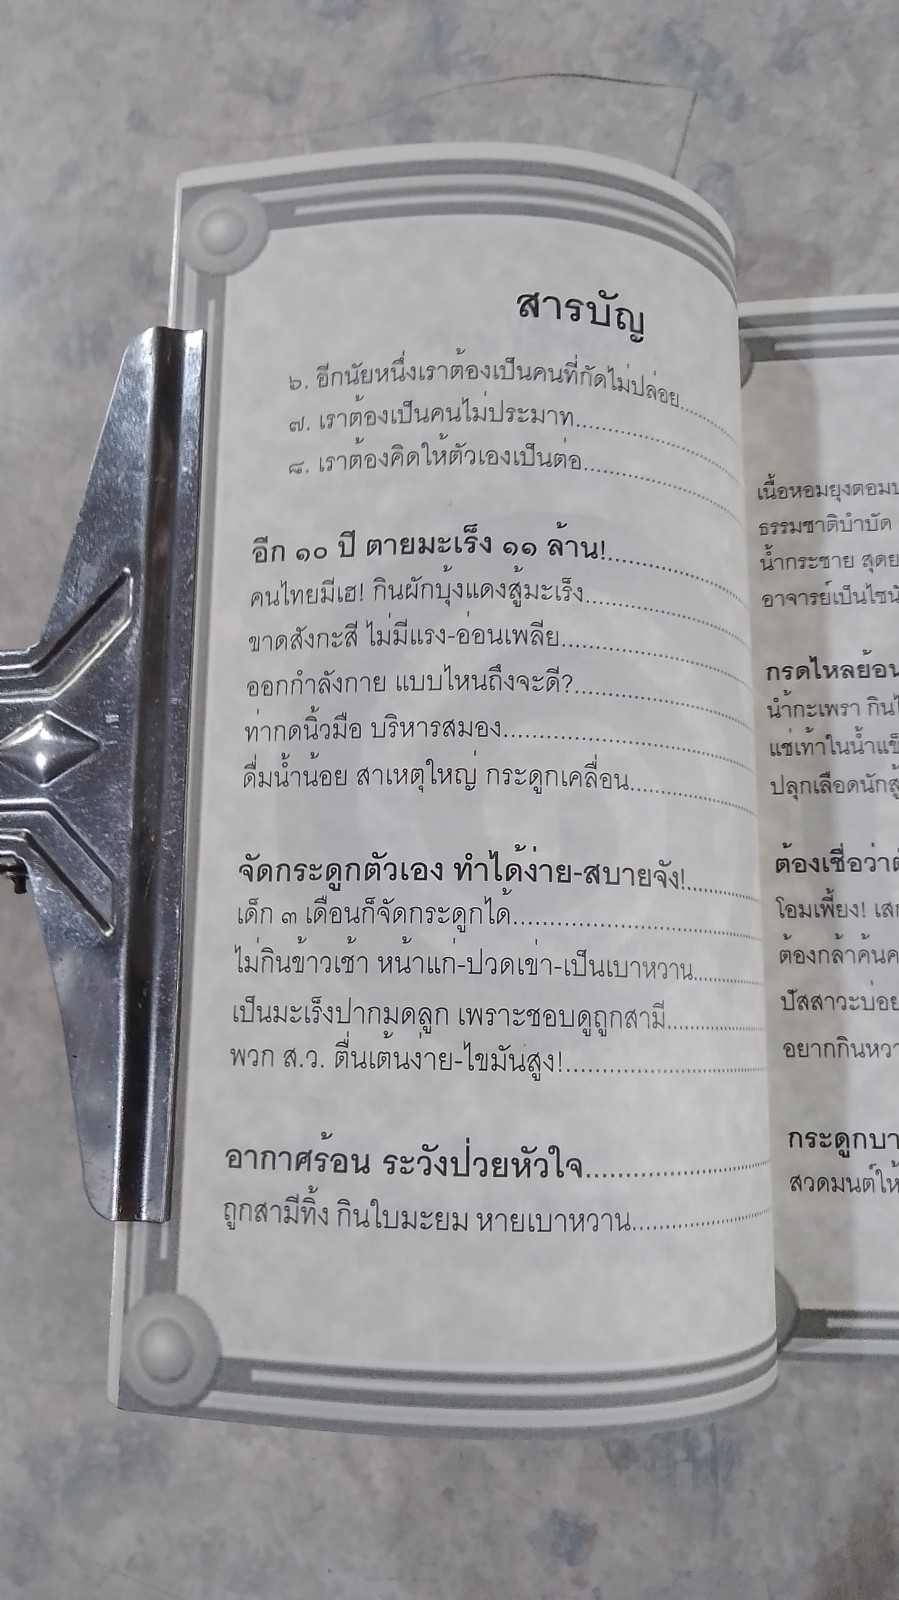 สารบัญ
๖. อีกนัยหนึ่งเราต้องเป็นคนที่กัดไม่ปล่อย
๗. เราต้องเป็นคนไม่ประมาท
๘. เราต้องคิดให้ตัวเองเป็นต่อ
อีก ๑๐ ปี ตายมะเร็ง ๑๑ ล้าน!
คนไทยมีเฮ! กินผักบุ้งแดงสู้มะเร็ง
ขาดสังกะสี ไม่มีแรง-อ่อนเพลีย
ออกกำลังกาย แบบไหนถึงจะดี?
ท่ากดนิ้วมือ บริหารสมอง
ดื่มน้ำน้อย สาเหตุใหญ่ กระดูกเคลื่อน
จัดกระดูกตัวเอง ทำได้ง่าย-สบายจัง!
เด็ก ๓ เดือนก็จัดกระดูกได้
ไม่กินข้าวเช้า หน้าแก่-ปวดเข่า-เป็นเบาหวาน
เป็นมะเร็งปากมดลูก เพราะชอบดูถูกสามี
พวก ส.ว. ตื่นเต้นง่าย-ไขมันสูง!
อากาศร้อน ระวังป่วยหัวใจ
ถูกสามีทิ้ง กินใบมะยม หายเบาหวาน
เนื้อหอมยุงตอม
ธรรมชาติบำบัด
น้ำกระชาย สุดย
อาจารย์เป็นไซนั
กรดไหลย้อน
น้ำกะเพรา กิน
แช่เท้าในน้ำแข็
ปลุกเลือดนักสู้
ต้องเชื่อว่าต
โอมเพี้ยง! เส
ต้องกล้าค้นค
ปัสสาวะบ่อย
อยากกินหวา
กระดูกบา
สวดมนต์ให้